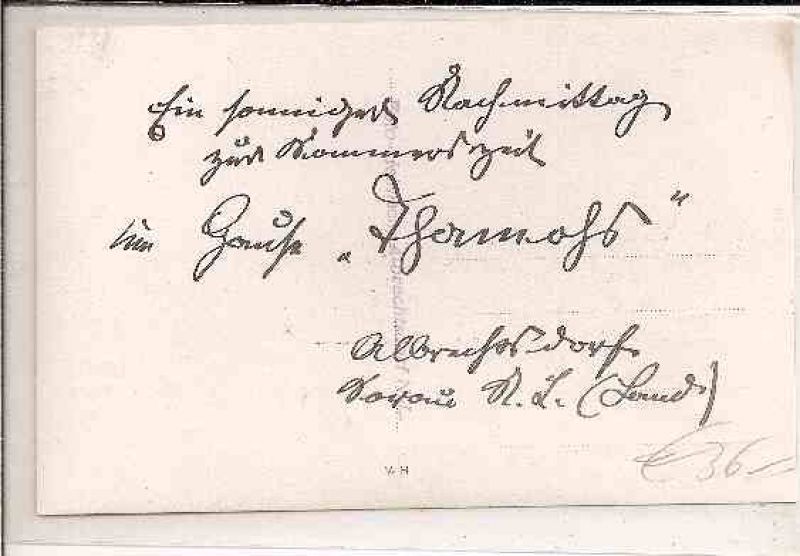 Ein sonniger Nachmittag
zur Sommerszeit
im Hause „Thamohs"
Albrechtsdorf
Sorau N. L. (Land)
W H
36